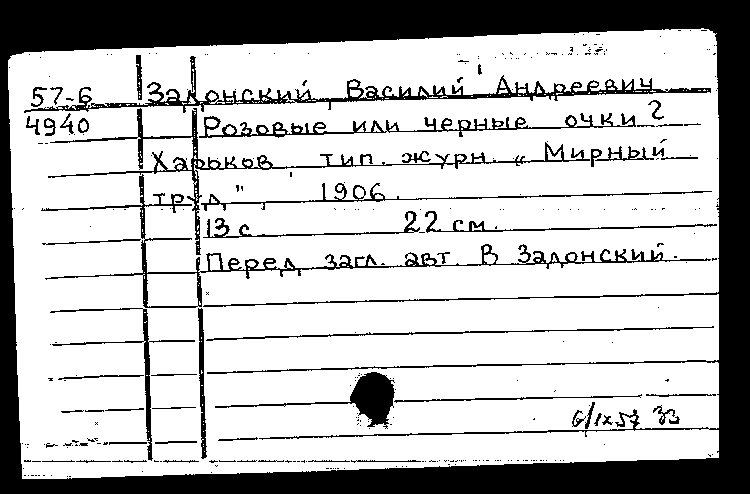 57-6 Задонский, Василий Андреевич
4940 Розовые или черные очки?
Харьков, тип. журн. „Мирный
труд", 1906.
13 с. 22 см.
Перед загл. авт. В Задонский.
6/IX 57